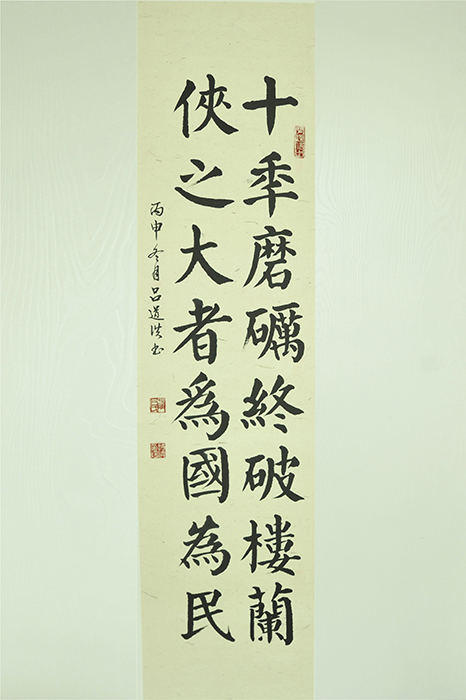 十秊磨礪終破樓蘭
俠之大者爲國為民
丙申冬月呂道洪书